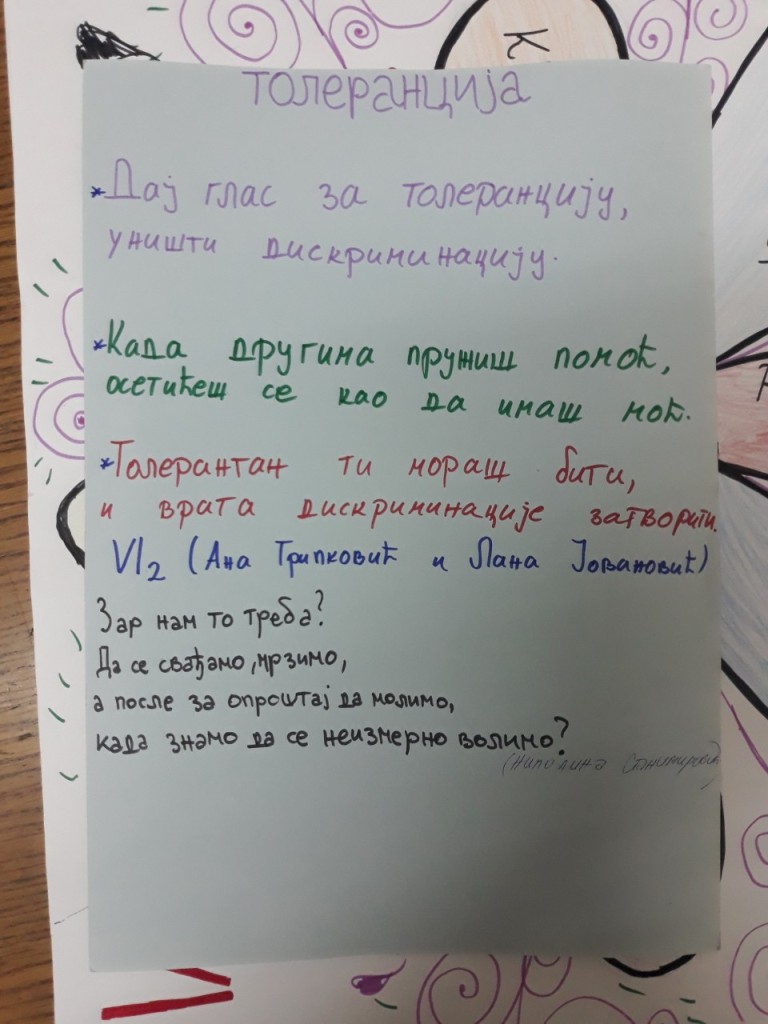 толеранција
*Дај глас за толеранцију,
уништи дискриминацију.
*Када другима пружиш помоћ,
осетићеш се као да имаш моћ.
*Толерантан ти мораш бити,
и врата дискриминације затворити.
VI2 (Ана Трипковић и Лана Јовановић)
Зар нам то треба?
Да се свађамо, мрзимо,
а после за опроштај да молимо,
када знамо да се неизмерно волимо?